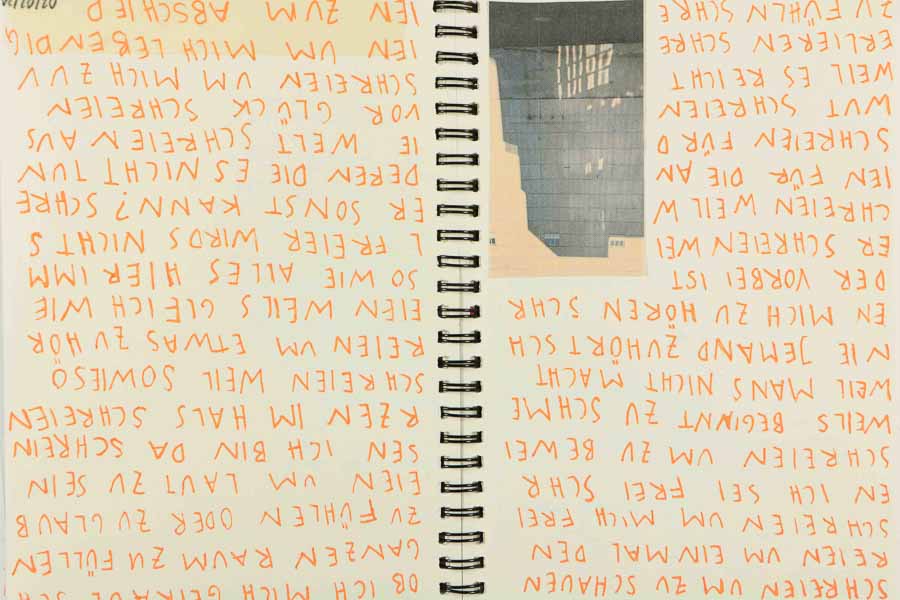 SCHREIEN UM ZU SCHAUEN OB ICH MICH GETRAUE SCH
REIEN UM EINMAL DEN GANZEN RAUM ZU FÜLLEN
SCHREIEN UM MICH FREI ZU FÜHLEN ODER ZU GLAUB
EN ICH SEI FREI SCHR EIEN UM LAUT ZU SEIN
SCHREIEN UM ZU BEWEI SEN ICH BIN DA SCHREIN
WEILS BEGINNT ZU SCHME RZEN IM HALS SCHREIEN
WEIL MANS NICHT MACHT SCHREIEN WEIL SOWIESO
NIE JEMAND ZUHÖRT SCH REIEN UM ETWAS ZU HÖR
EN MICH ZU HÖREN SCHR EIEN WEILS GLEICH WIE
DER VORBEI IST SO WIE ALLES HIER IMM
ER SCHREIEN WEI L FREIER WIRDS NICHT S
CHREIEN WEIL W ER SONST KANN? SCHRE
IEN FÜR DIE AN DEREN DIE ES NICHT TUN
SCHREIEN FÜR D IE WELT SCHREIEN AUS
WUT SCHREIEN VOR GLÜCK SCHREIEN
WEIL ES REICHT SCHREIEN UM MICH ZU V
ERLIEREN SCHRE IEN UM MICH LEBENDIG
ZU FÜHLEN SCHRE IEN ZUM ABSCHIED